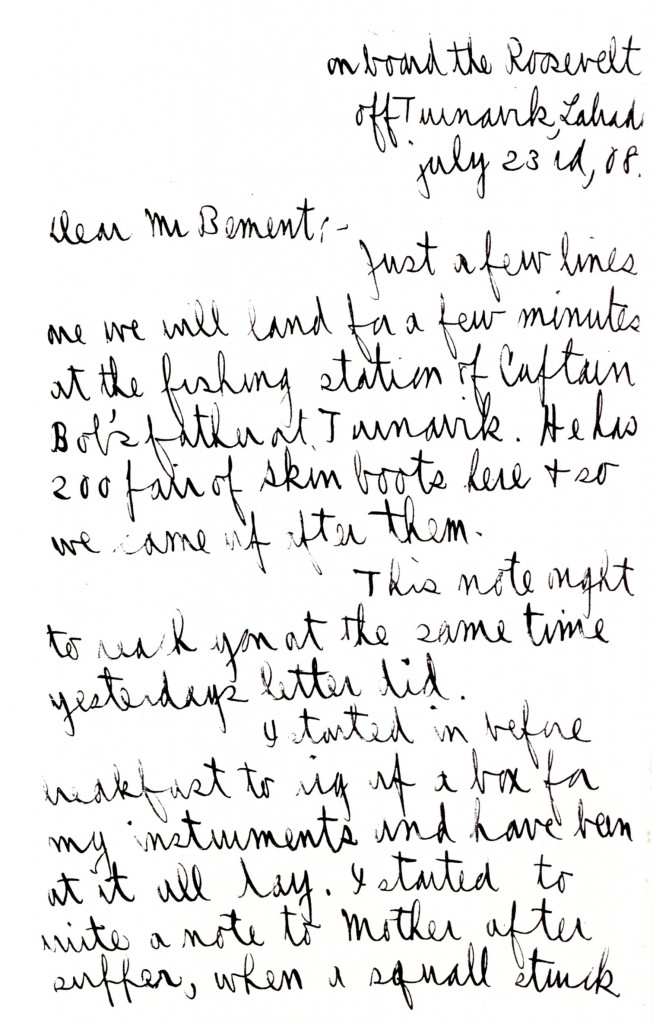 on board the Roosevelt
off Turnavik, Labrad.
july 23rd, 08.
Dear Mr Bement;-
Just a few lines
we will land for a few minutes
at the fishing station of Captain
Bob's father at Turnavik. He has
200 pair of skin boots here + so
we came up after them.
This note might
to reach you at the same time
yesterdays letter did.
I started in before
breakfast to rig up a box for
my instruments and have been
at it all day. I started to
write a note to Mother after
supper, when a squall struck